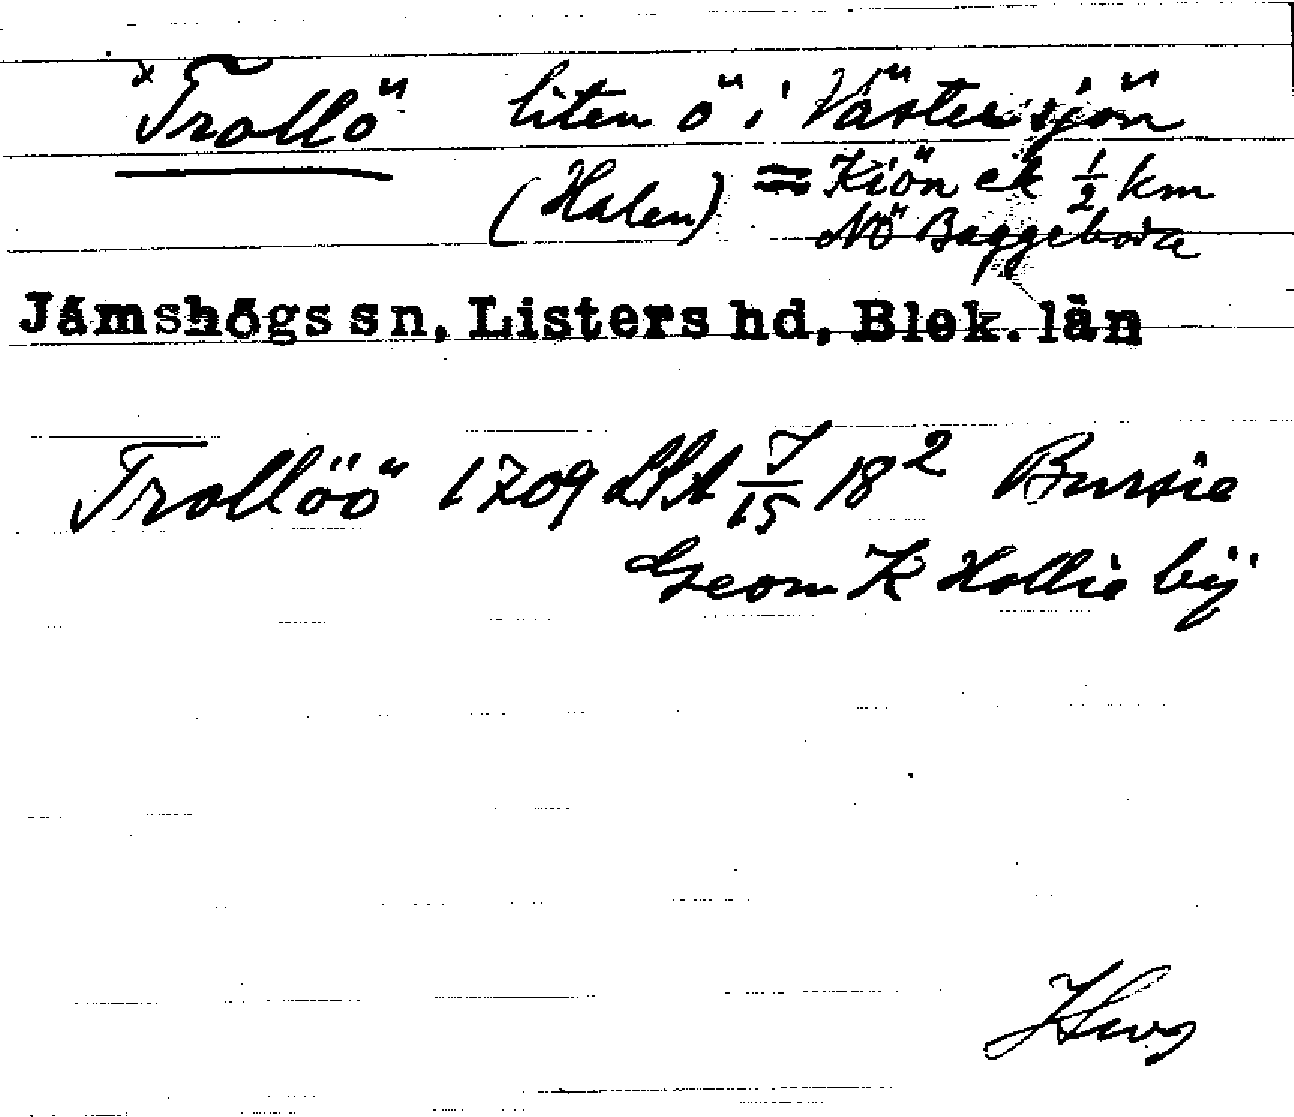 ×Trollö liten ö i Västersjön
(Halen) = Kiön ek ½ km
NÖ Baggeboda
Jämshögs sn, Listers hd, Blek. län
Trollöö 1709 LSA J/15 18² Bursie
Geom K Hollie bÿ